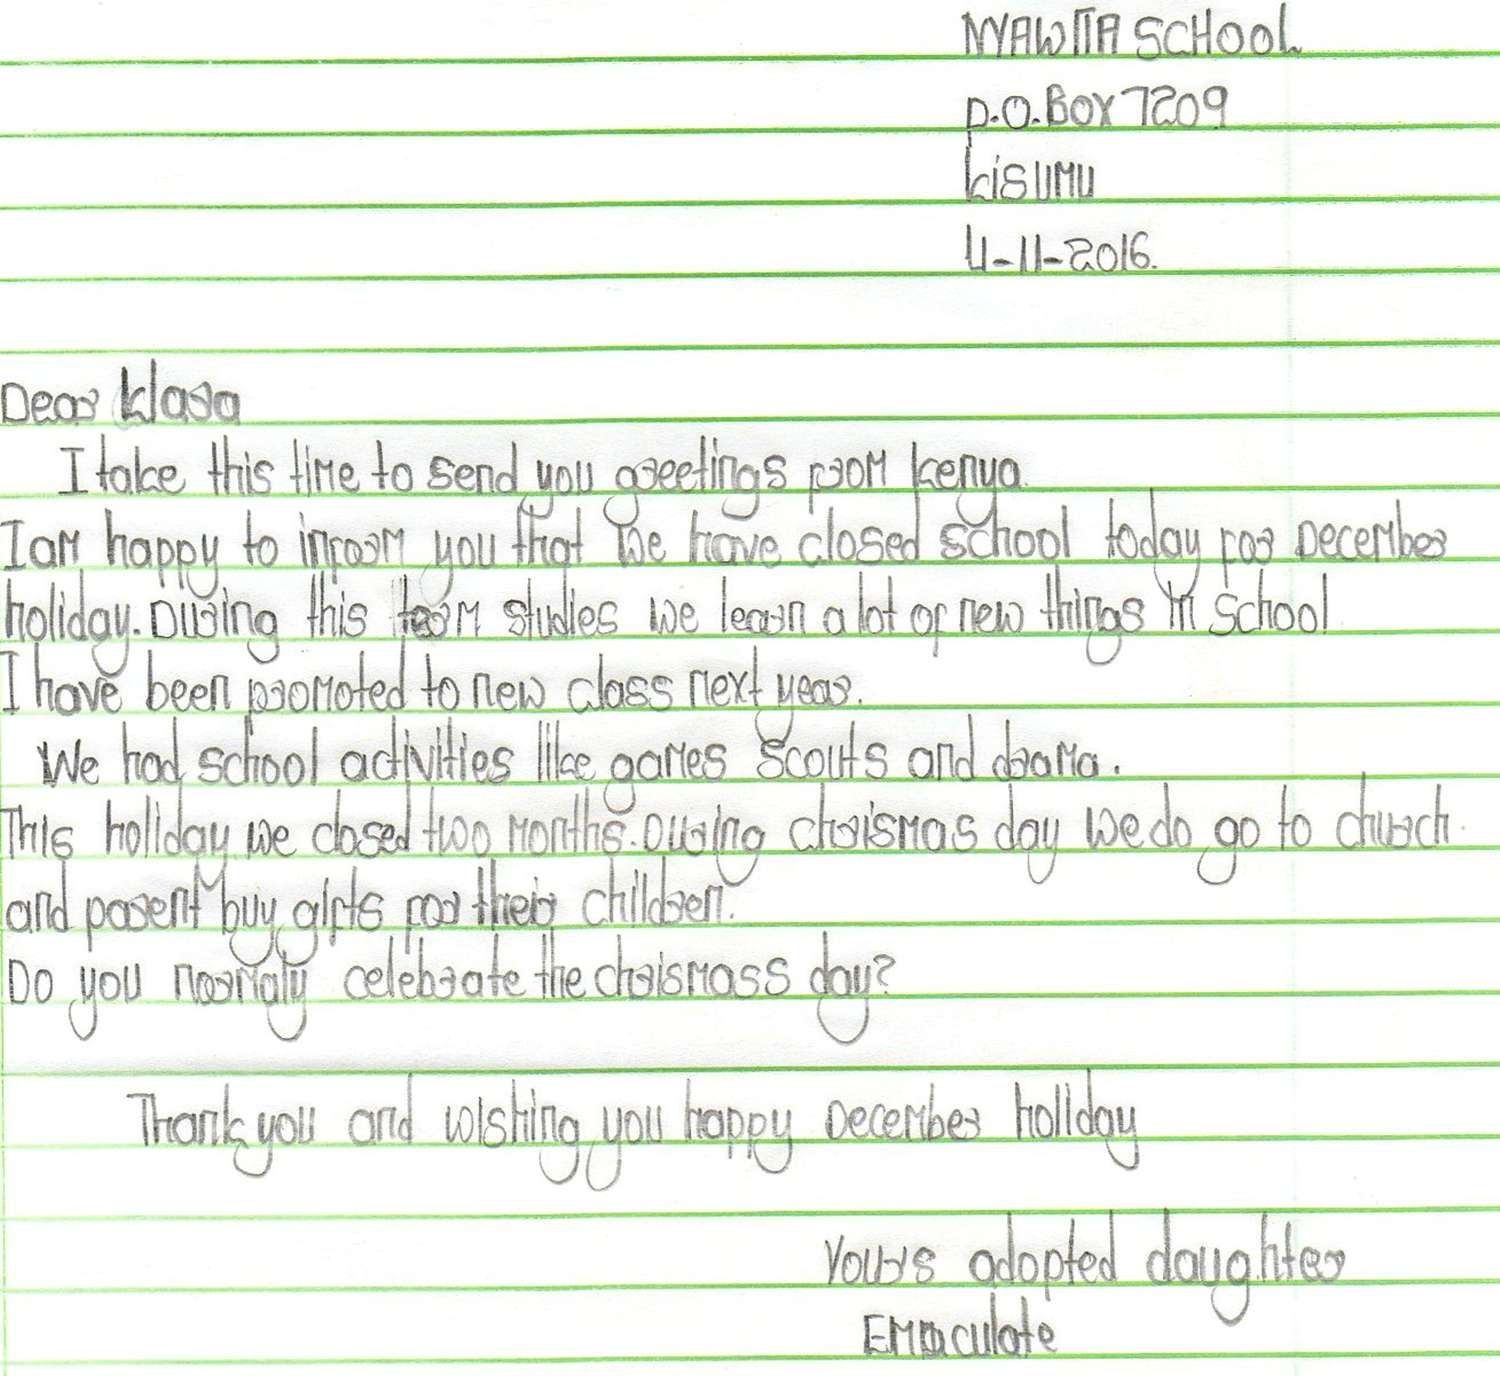 NYAWITA SCHOOL
P.O. BOX 7209
KISUMU
4-11-2016.
Dear Klara
I take this time to send you greetings from kenya
I am happy to inform you that we have closed school today for December
holiday. During this term studies we learn a lot of new things in school
I have been promoted to new class next year.
We had school activities like games scouts and drama.
This holiday we closed two months. During chrismas day we do go to church
and parent buy gifts for their children.
Do you normaly celebrate the chrismass day?
Thank you and wishing you happy December holiday
Yours adopted daughter
Emmaculate